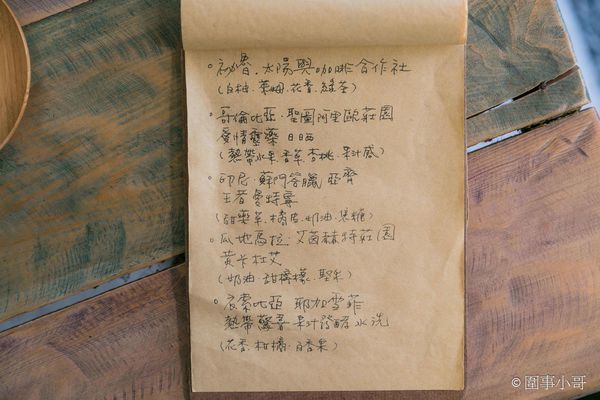 。祕魯.太陽與咖啡合作社
(白柚.萊姆.花香.綠茶)
。哥倫比亞.聖圖阿里歐莊園
愛情靈藥 日晒
(熱帶水果.香草.李桃.果汁感)
。印尼.蘇門答臘 亞齊
王者曼特寧
(甜藥草.橘皮.奶油.黑糖)
。瓜地馬拉.艾茵赫特莊園
黃卡杜艾
(奶油.甜檸檬.堅果)
。衣索比亞 耶加雪菲
熱帶驚喜.果汁發酵水洗
(花香.柑橘.百香果)
© 圍事小哥